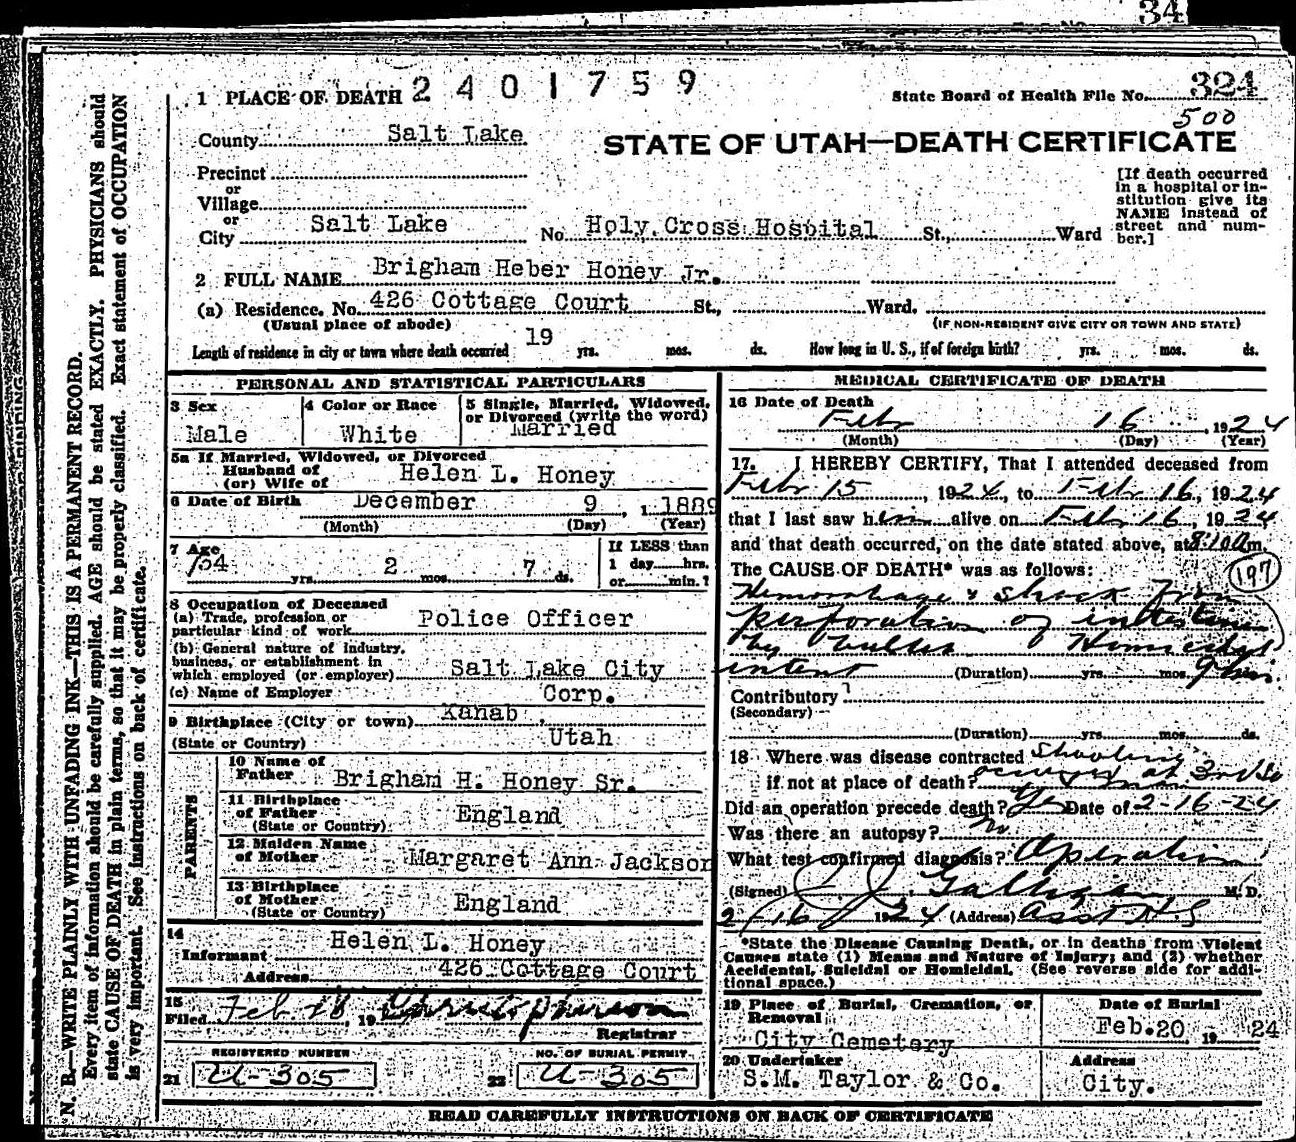 34
1 PLACE OF DEATH 2401759
State Board of Health File No. 324
500
County Salt Lake
STATE OF UTAH—DEATH CERTIFICATE
Precinct
or
Village
or
City Salt Lake No. Holy Cross Hospital St., Ward
[If death occurred
in a hospital or in-
stitution give its
NAME instead of
street and num-
ber.]
2 FULL NAME Brigham Heber Honey Jr.
(a) Residence. No. 426 Cottage Court St., Ward.
(Usual place of abode) (IF NON-RESIDENT GIVE CITY OR TOWN AND STATE)
Length of residence in city or town where death occurred 19 yrs. mos. ds. How long in U. S., if of foreign birth? yrs. mos. ds.
PERSONAL AND STATISTICAL PARTICULARS
3 Sex
Male
4 Color or Race
White
5 Single, Married, Widowed,
or Divorced (write the word)
Married
5a If Married, Widowed, or Divorced
Husband of
(or) Wife of Helen L. Honey
6 Date of Birth December 9, 1889
(Month) (Day) (Year)
7 Age
34 yrs. 2 mos. 7 ds.
If LESS than
1 day hrs.
or min.?
8 Occupation of Deceased
(a) Trade, profession or
particular kind of work Police Officer
(b) General nature of industry,
business, or establishment in
which employed (or employer) Salt Lake City
(c) Name of Employer Corp.
9 Birthplace (City or town) Kanab,
(State or Country) Utah
PARENTS
10 Name of
Father Brigham H. Honey Sr.
11 Birthplace
of Father England
(State or Country)
12 Maiden Name
of Mother Margaret Ann Jackson
13 Birthplace
of Mother England
(State or Country)
14
Informant Helen L. Honey
Address 426 Cottage Court
15
Filed Feb 18, 19
Registrar
REGISTERED NUMBER
21 U-305
NO. OF BURIAL PERMIT
22 U-305
MEDICAL CERTIFICATE OF DEATH
16 Date of Death
Feb 16, 1924
(Month) (Day) (Year)
17. I HEREBY CERTIFY, That I attended deceased from
Feb 15, 1924, to Feb 16, 1924
that I last saw him alive on Feb 16, 1924
and that death occurred, on the date stated above, at 8:10am.
The CAUSE OF DEATH* was as follows:
197
Hemorrhage & shock from
perforation of intestine
by bullet Homicidal
intent (Duration) yrs. mos. 9 hrs.
Contributory
(Secondary)
(Duration) yrs. mos. ds.
18 Where was disease contracted Shooting
if not at place of death? occurred at 3rd So
Did an operation precede death? Yes Date of 2-16-24
Was there an autopsy? No
What test confirmed diagnosis? Operation
(Signed) J. Galligan M. D.
2/16 1924 (Address) Asst
*State the Disease Causing Death, or in deaths from Violent
Causes state (1) Means and Nature of Injury; and (2) whether
Accidental, Suicidal or Homicidal. (See reverse side for addi-
tional space.)
19 Place of Burial, Cremation, or
Removal
City Cemetery
Date of Burial
Feb.20 1924
20 Undertaker
S.M. Taylor & Co.
Address
City.
READ CAREFULLY INSTRUCTIONS ON BACK OF CERTIFICATE
N. B.—WRITE PLAINLY WITH UNFADING INK—THIS IS A PERMANENT RECORD.
Every item of information should be carefully supplied. AGE should be stated EXACTLY. PHYSICIANS should
state CAUSE OF DEATH in plain terms, so that it may be properly classified. Exact statement of OCCUPATION
is very important. See instructions on back of certificate.